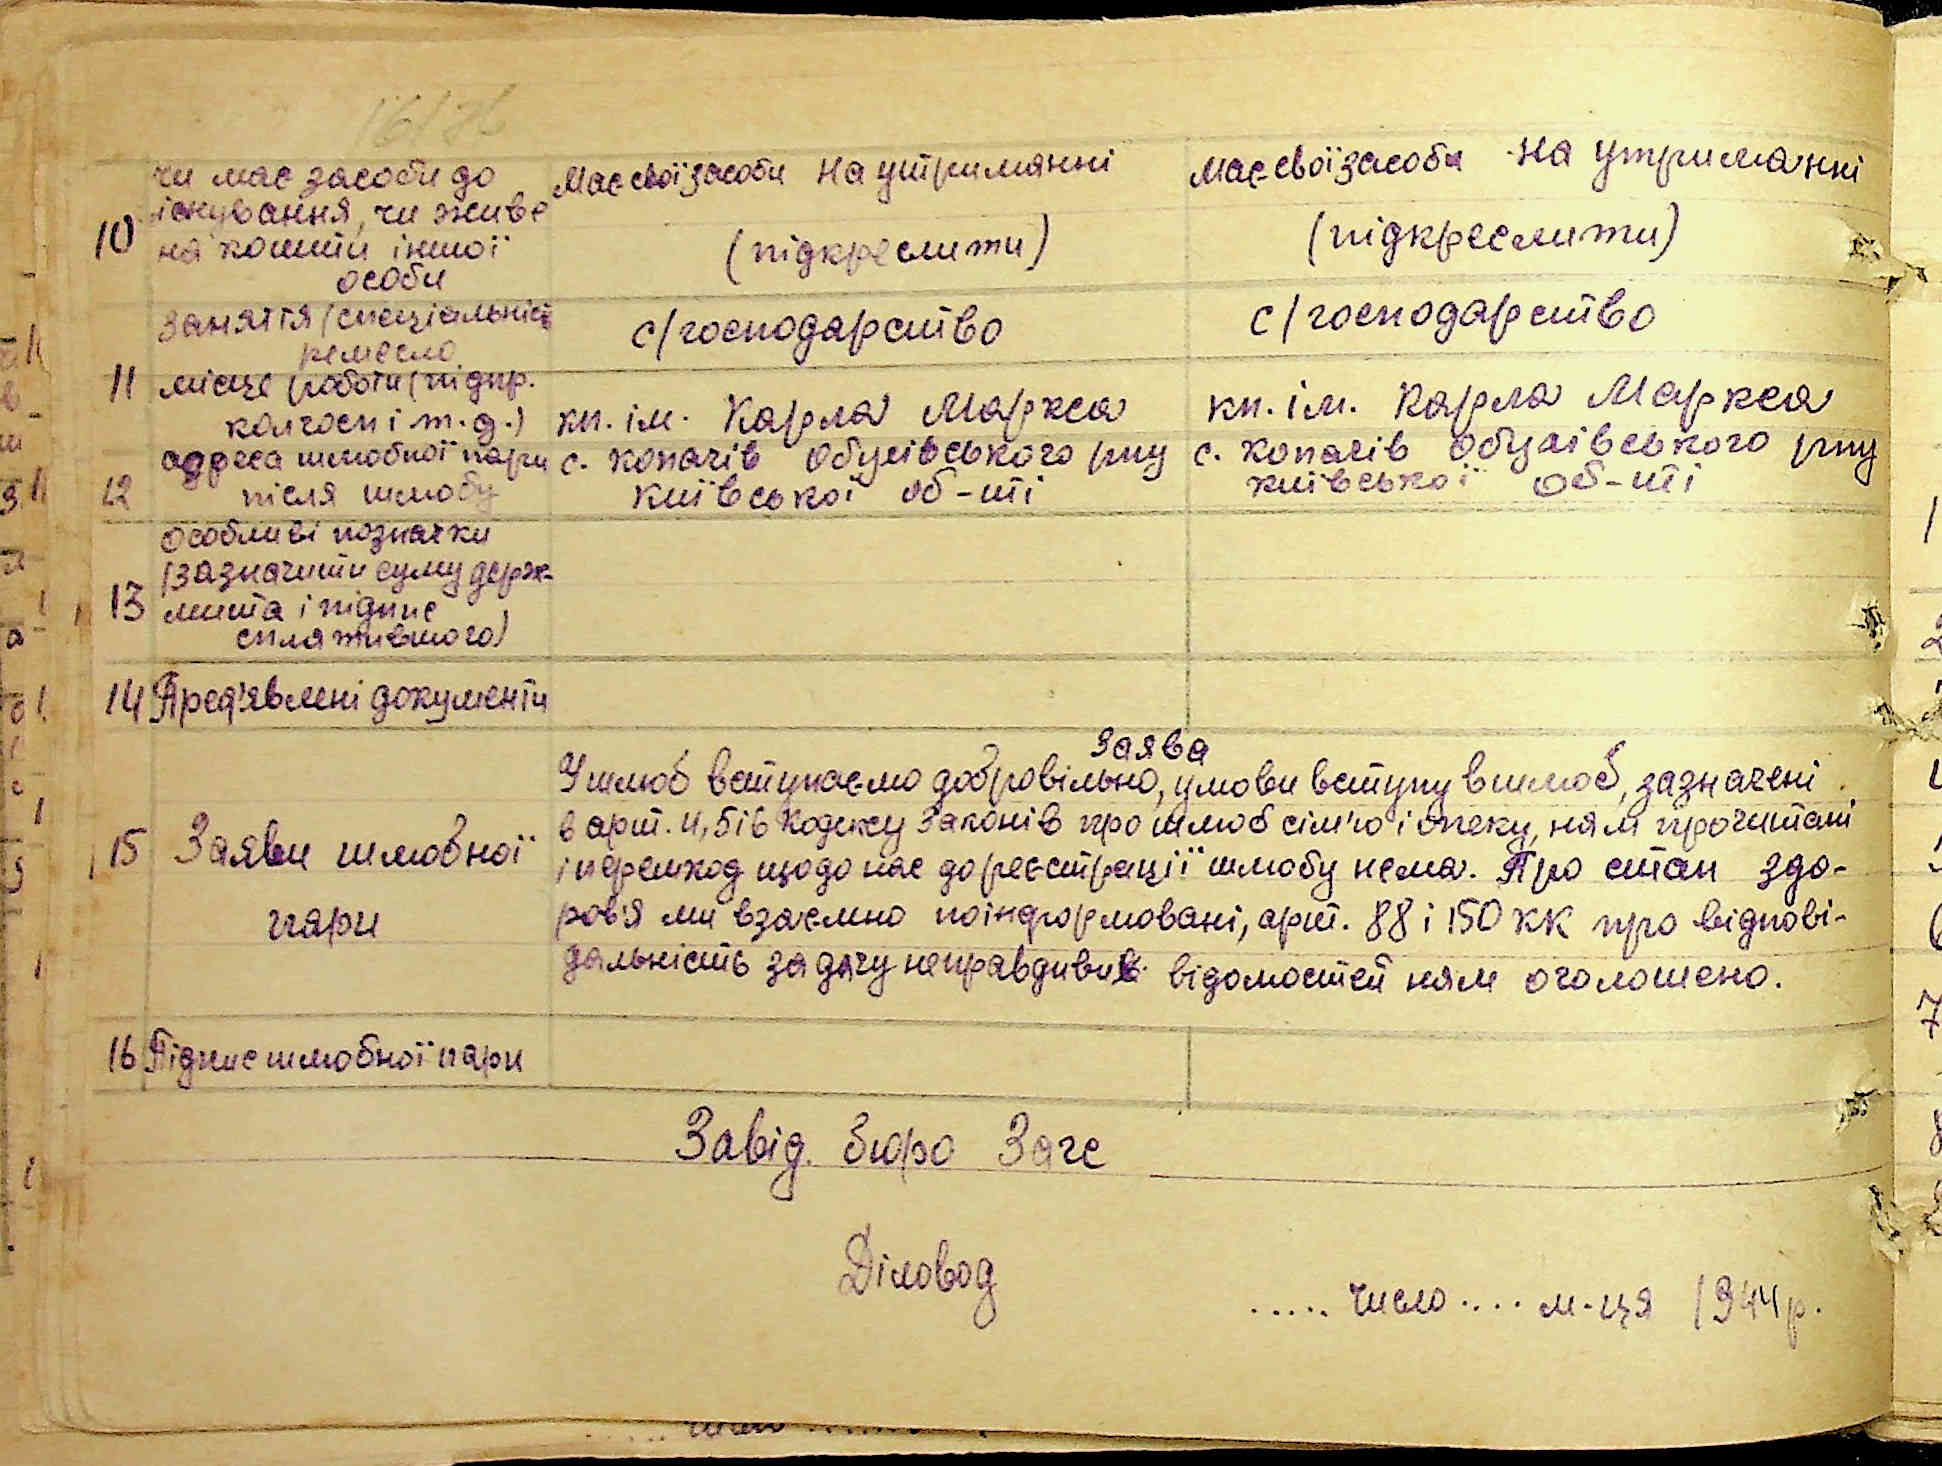 10 чи має засоби до
існування, чи живе
на кошти іншої
особи
Має свої засоби На утриманні
(підкреслити)
має свої засоби на утриманні
(підкреслити)
11 заняття (спеціальніст
ремесло
місце роботи (підпр.
колгосп і т. д.)
с/господарство
кп. ім. Карла Маркса
с/господарство
кп. ім. Карла Маркса
12 адреса шлюбної пари
після шлюбу
с. Копачів Обухівського рну
Київської об-ті
с. Копачів Обухівського рну
Київської об-ті
13 Особливі позначки
(зазначити суму держ-
мита і підпис
сплатившого)
14 Пред'явлені документи
15 Заяви шлюбної
пари
Заява
У шлюб вступаємо добровільно, умови вступу в шлюб, зазначені
в арт. 4, 5 і 6 Кодексу Законів про шлюб сім'ю і опеку, нам прочитані
і перешкод щодо нас до реєстрації шлюбу нема. Про стан здо-
ров'я ми взаємно поінформовані, арт. 88 і 150 КК про відпові-
дальність за дачу неправдивих відомостей нам оголошено.
16 Підпис шлюбної пари
Завід. бюро Загс
Діловод
..... число .... м-ця 1944 р.